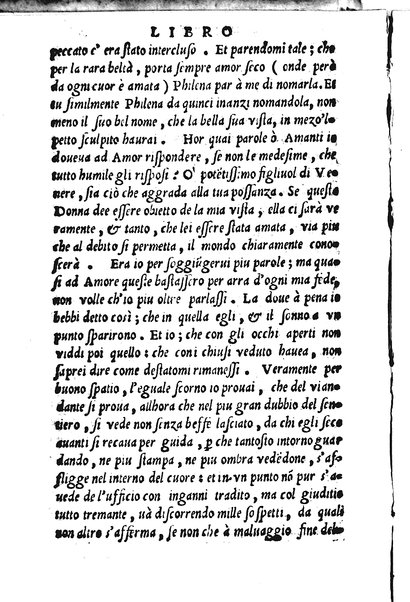 LIBRO
peccato c' era stato intercluso . Et parendomi tale ; che
per la rara beltà , porta sempre amor seco ( onde però
da ogni cuor è amata ) Philena par à me di nomarla. Et
tu similmente Philena da quinci inanzi nomandola, non
meno il suo bel nome , che la bella sua vista, in mezo'l
petto sculpito haurai . Hor quai parole ò Amanti io
doueua ad Amor rispondere , se non le medesime , che
tutto humile gli risposi ? O' potẽtissimo figliuol di Ve
nere , sia ciò che aggrada alla tua possanza. Se questa
Donna dee essere obietto de la mia vista ; ella ci sarà ve
ramente , & tanto , che lei essere stata amata , via piu
che al debito si permetta , il mondo chiaramente cono
scerà . Era io per soggiũgerui piu parole ; ma quasi
si ad Amore queste bastassero per arra d'ogni mia fede,
non volle ch'io piu oltre parlassi . La doue à pena io
hebbi detto così ; che in quella egli , & il sonno a vn
punto sparirono . Et io ; che con gli occhi aperti non
viddi poi quello : che con i chiusi veduto hauea , non
saprei dire come destatomi rimanessi . Veramente per
buono spatio , l'eguale scorno io prouai , che del vian
dante si proua, allhora che nel piu gran dubbio del sen
tiero , si vede non senza beffe lasciato , da chi egli seco
auanti si recaua per guida , ꝑ che tantosto intorno guar
dando, ne piu stampa , ne piu ombra vedẽdone , s'af
fligge nel interno del cuore : et in vn punto nó pur s'a
uede de l'ufficio con inganni tradito , ma col giuditio
tutto tremante , uà discorrendo mille sospetti , da quali
non altro s'afferma, se non che à maluaggio fine del